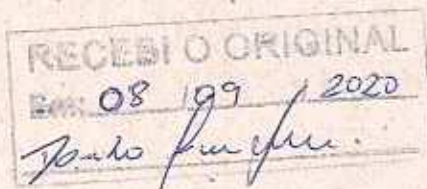 RECEBI O ORIGINAL
Em: 08 / 09 / 2020